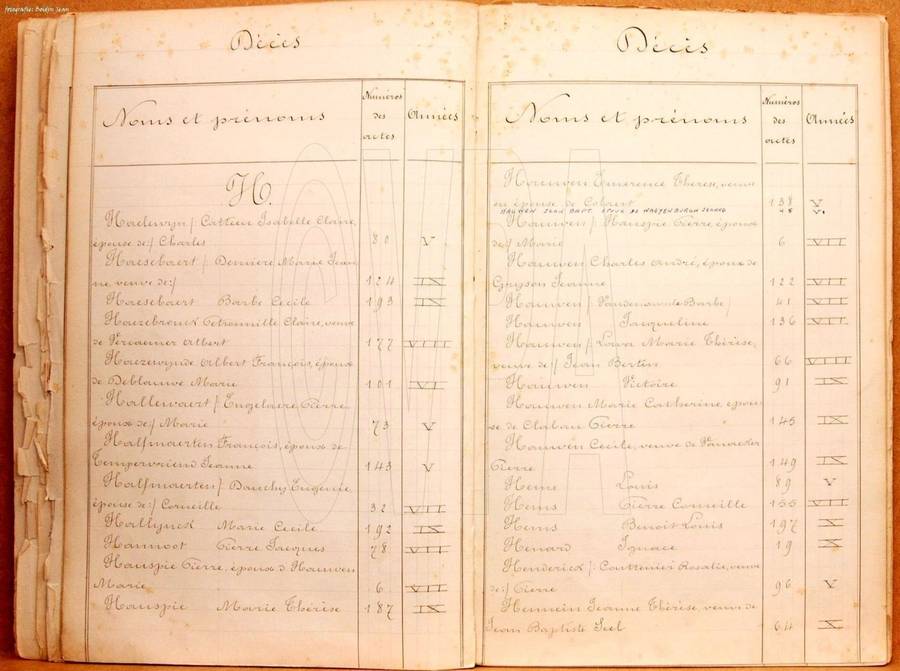 fotografie: Boidin Jean
Décès
Noms et prénoms
Numéros
des
actes
Années
H.
Haelewijn /: Cattieu Isabelle Claire,
épouse de:/ Charles 80 V
Haesebaert /: Demière Marie Jean
ne, veuve de:/ 124 IX
Haesebaert Barbe Cécile 193 IX
Haezebrouck Pétronille Claire, veuve
de Albert 177 VIIII
Haezewynde Albert François, époux
de Deblauwe Marie 101 VI
Hallewaert /: Engelaere Pierre,
époux de:/ Marie 73 V
Halfmaerten François, époux de
Tempervriend Jeanne 143 V
Halfmaerten /: Dauchy Eugénie,
épouse de:/ Corneille 32 VII
Hallynck Marie Cécile 192 IX
Hannoot Pierre Jacques 78 VII
Hauspie Pierre, époux d. Hauwen
Marie 6 VII
Hauspie Marie Thérèse 187 IX
Décès
Noms et prénoms
Numéros
des
actes
Années
Hauwen Emérence Thérèse, veuve
ou épouse de 138 V
HAUWEN JEAN BAPT. EPOUX DE WAEYENBURGH 48 V.
Hauwen /: Hauspie Pierre époux
de:/ Marie 6 VII
Hauwen Charles André, époux de
Gruyson Jeanne 122 VII
Hauwen /: Barbe / 41 VII
Hauwen Jacqueline 136 VII
Hauwen /: Marie Thérèse,
veuve de:/ Jean Bertin 66 VIII
Hauwen Victoire 91 IX
Hauwen Marie Catherine, épou
se de Clabau Pierre 145 IX
Hauwen Cécile, veuve de
Pierre 149 IX
Heme Louis 89 V
Hems Pierre Corneille 155 VII
Hems Benoit Louis 197 X
Henard Ignace 19 X
Henderick /: Coutrenier Rosalie, veuve
de:/ Pierre 96 V
Hennein Jeanne Thérèse, veuve de
Jean Baptiste 64 X